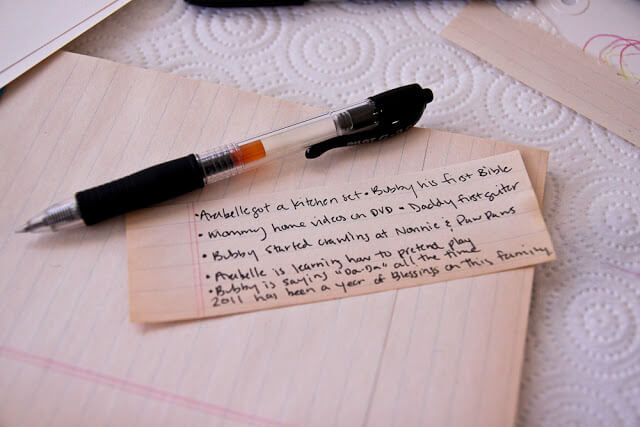 PILOT G-2
• Arabelle got a kitchen set • Bubby his first Bible
• Mommy home videos on DVD • Daddy first guitar
• Bubby started crawling at Nonnie & PawPaws
• Arabelle is learning how to pretend play
• Bubby is saying "Da-Da" all the time
2011 has been a year of Blessings on this family